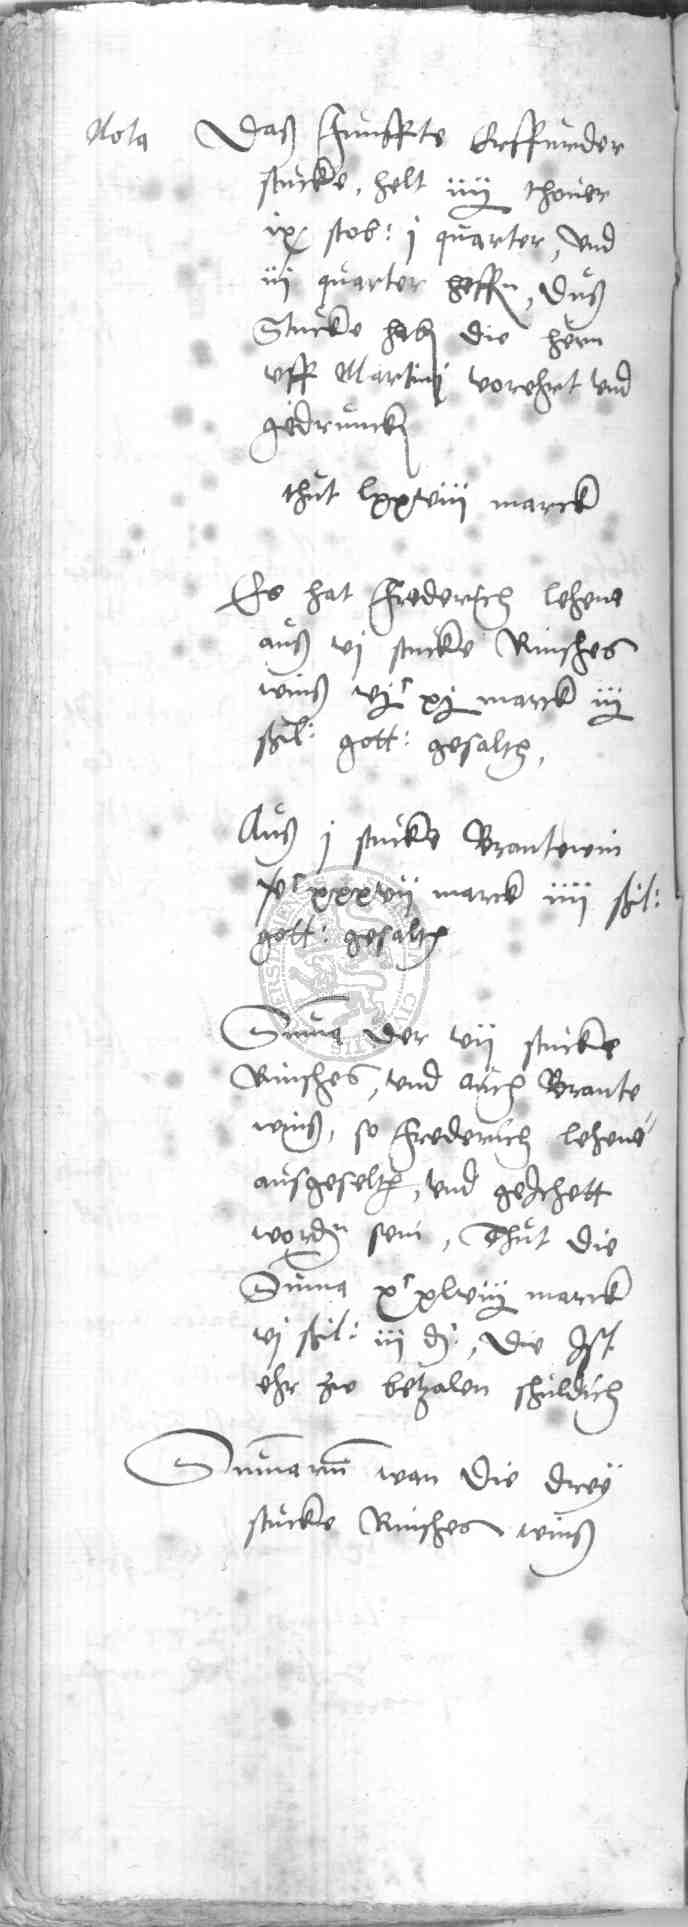 Nota Daß Funffte Erffurder
stucke, helt iiij thoner
ix stob: j quarter, vnd
iij quarter heffn, Duß
Stucke hab die hern
vff Martinj vorehrt vnd
gedrunck
thut lxxviii marck
Es hat Frederich lehens
auß vj stucke Rinsches
winß vijc xij marck iij
schil: gott: gesaltz,
Auß j stucke Brantewin
xxxvij marck iiij schil:
gott: gesaltz
Suma der vij stucke
Rinsches, vnd auch Brante
winß, so Frederich lehens
ausgeseltz, vnd geIchett
wordn sein, Thut die
Suma xc xlviij marck
vj schil: iii d:, die Ist
ehr zw betzalen schuldich
Sumarum wan die drey
stucke Rinsches winß